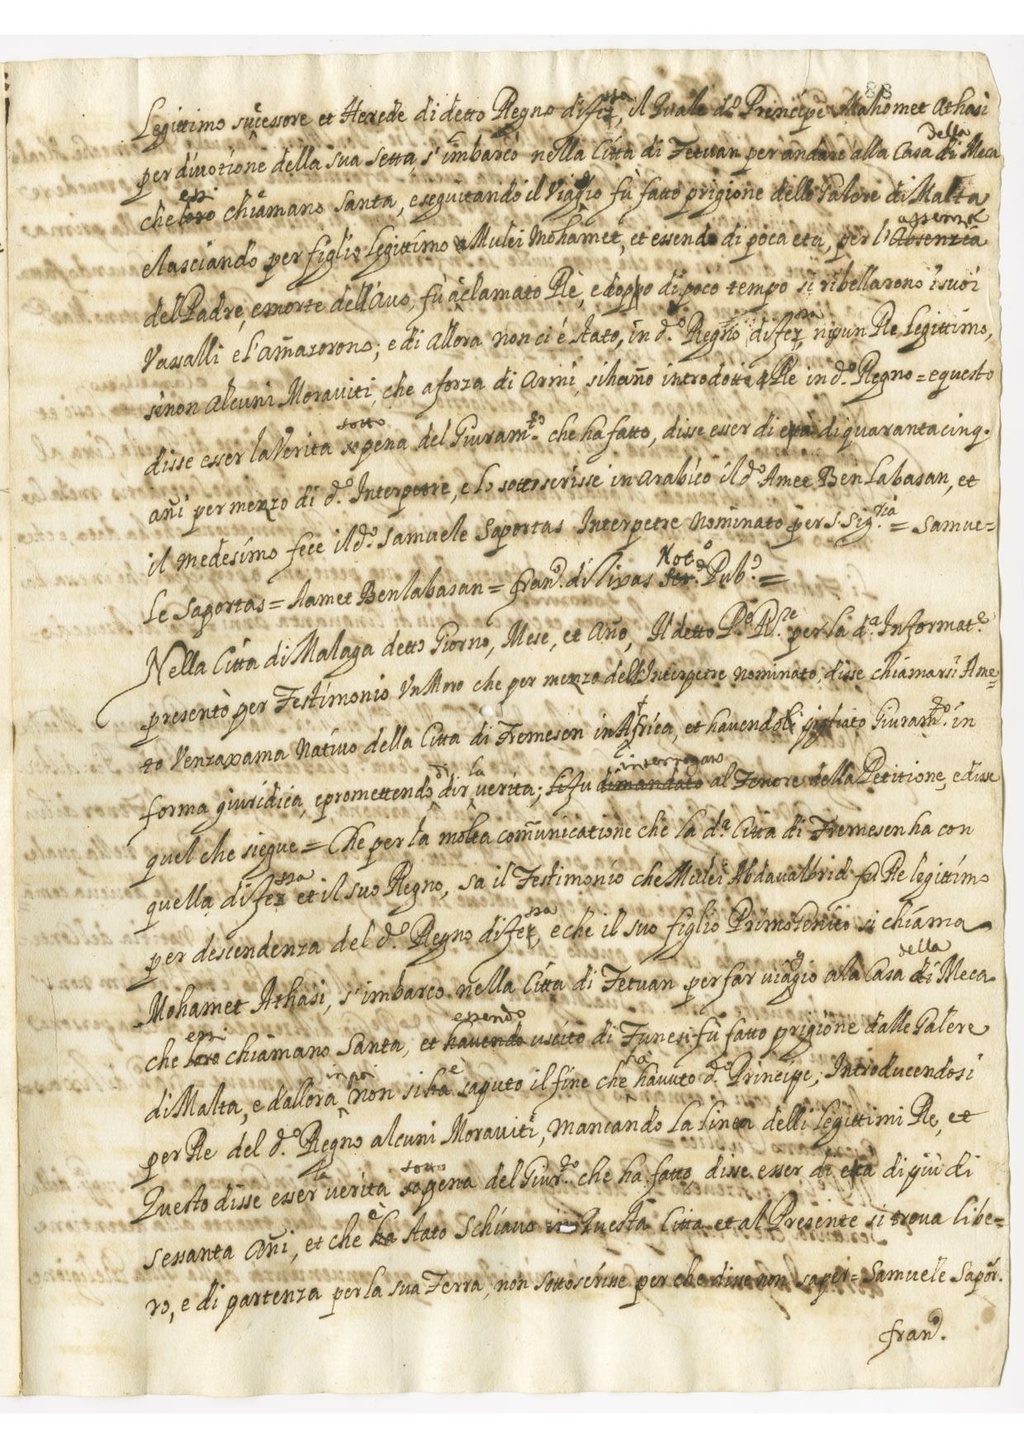 88
Legittimo successore et Herede di detto Regno di fezza, il Quale d.º Principe Mahomet Athasi
per divotione della sua setta, s'imbarcò nella Città di Tetuan per andare alla Casa di della Meca
che loro essi chiamano Santa, e seguitando il Viagio fù fatto prigione delle Galere di Malta
elasciando per figlio legittimo a Mulei Mohamet, et essendo di poca età, per l'Absenzia assenza
del Padre, e morte dell'Avo, fù aclamato Rè, e doppo di poco tempo si ribellarono i suoi
Vassalli e l'amazorono; e di allora non ci é stato, in d.º Regno di fezza niun Re legittimo,
sè non alcuni Moraviti, che a forza di Armi, si hano introdotti Re in d.º Regno = e questo
disse esser la Verita sotto pena del Giuram.to che ha fatto, disse esser di età di quaranta cinq.
añi per mezzo di d.º Interpetre, e lo sottoscrisse in Arabico il d.º Amet Ben Labasan, et
il medesimo fece il d.º Samuele Saportas Interpetre Nominato per s. Sig.ria = Samue=
le Saportas = Hamet Benlabasan = fran.º di Rivas Not.º Pub.º =
Nella Città di Malaga detto Giorno, Mese, et Año, Il detto P.e per la d.ª Informat.e
presentò per Testimonio Un Moro che per mezzo dell'Interpetre nominato, disse chiamarsi Ame=
to Venzaxama Nativo della Città di Tremesen in Africa, et havendoli pigliato Giuram.to in
forma giuridica, e promettendo di dir la verità; li fù dimandato interrogato al Tenore della Petitione, e disse
quel che siegue = Che per la molta comunicatione che la d.ª Città di Tremesen ha con
quella di fezza et il suo Regno, sa il Testimonio che Mulei Abdavalbrid fù Re legittimo
per descendenza del d.º Regno di fezza, e che il suo figlio Primogenito si chiama
Mohamet Athasi, s'imbarco nella Città di Tetuan per far viagio ala Casa di della Meca
che loro essi chiamano Santa, et havendo essendo uscito di Tunesi fù fatto prigione dalle Galere
di Malta, e dallora in poi non si ha è saputo il fine che ha havuto d.to Principe, Introducendosi
per Re del d.º Regno alcuni Moraviti, mancando la linea delli legittimi Re, et
Questo disse esser la verita sotto pena del Giur.to che ha fatto, disse esser di età di più di
sessanta añi, et che ha è stato Schiavo in Questa Città et al Presente si trova libe=
ro, e di partenza per la sua Terra, non sottoscrisse per che disse non saper = Samuele Sapor.
fran.º